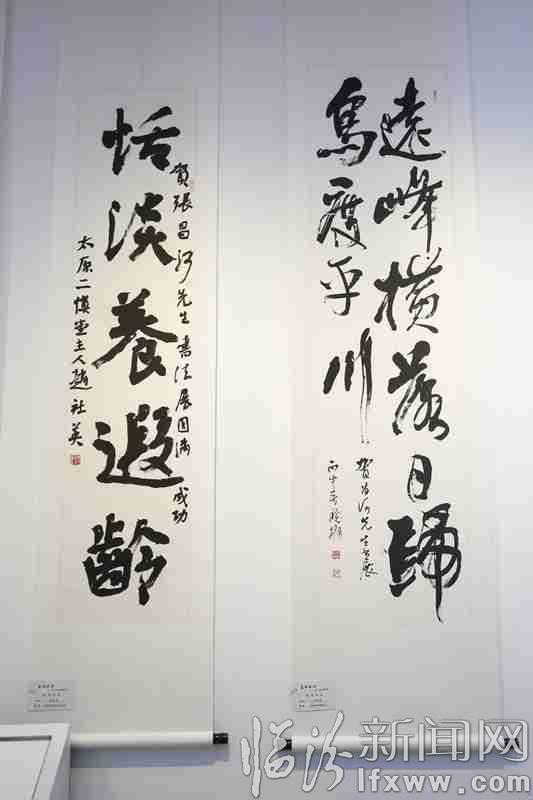 遠峰橫落日歸
鳥度平川
賀昌河先生書展
恬淡養遐齡
賀張昌河先生書法展圓滿成功
太原二慎堂主人趙社英
临汾新闻网
lfxww.com